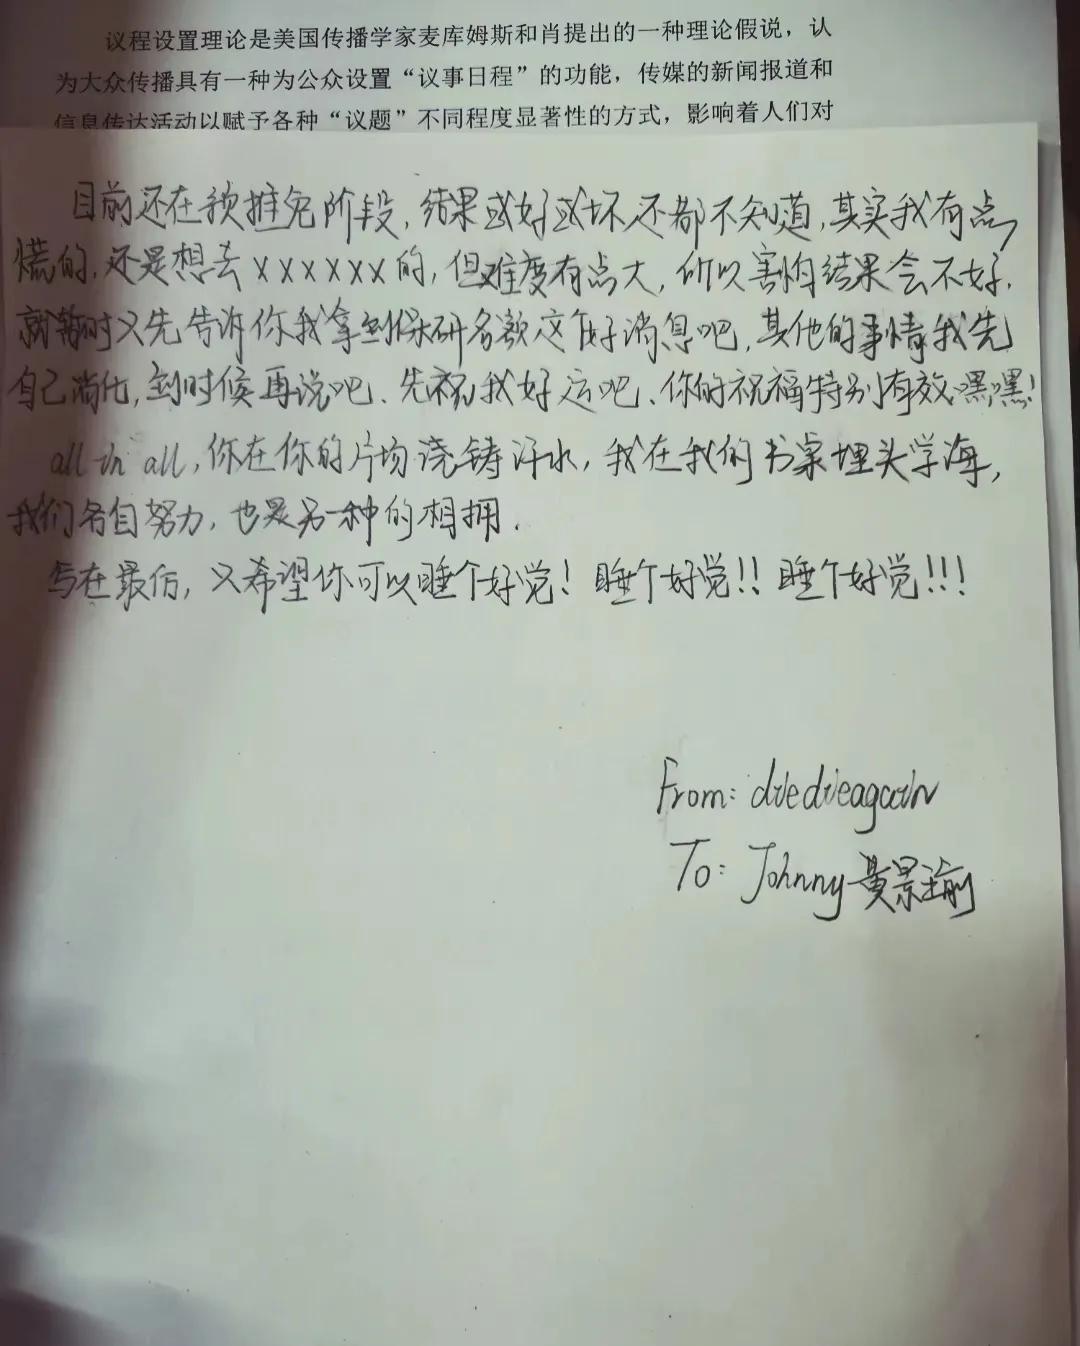 议程设置理论是美国传播学家麦库姆斯和肖提出的一种理论假说，认
为大众传播具有一种为公众设置“议事日程”的功能，传媒的新闻报道和
信息传达活动以赋予各种“议题”不同程度显著性的方式，影响着人们对
目前还在预推免阶段，结果或好或坏还都不知道，其实我有点
慌的，还是想去xxxxxx的，但难度有点大，所以害怕结果会不好，
就暂时只先告诉你我拿到保研名额这个好消息吧，其他的事情我先
自己消化，到时候再说吧、先祝我好运吧、你的祝福特别有效嘿嘿！
all in all，你在你的片场浇铸汗水，我在我的书桌埋头学海，
我们各自努力，也是另一种的相拥．
写在最后，只希望你可以睡个好觉！睡个好觉！！睡个好觉！！！
From: diedieagain
To: Johnny黄景瑜